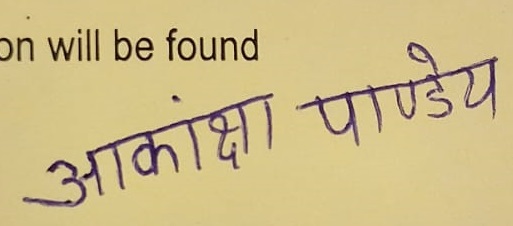 on will be found
आकांक्षा पाण्डेय